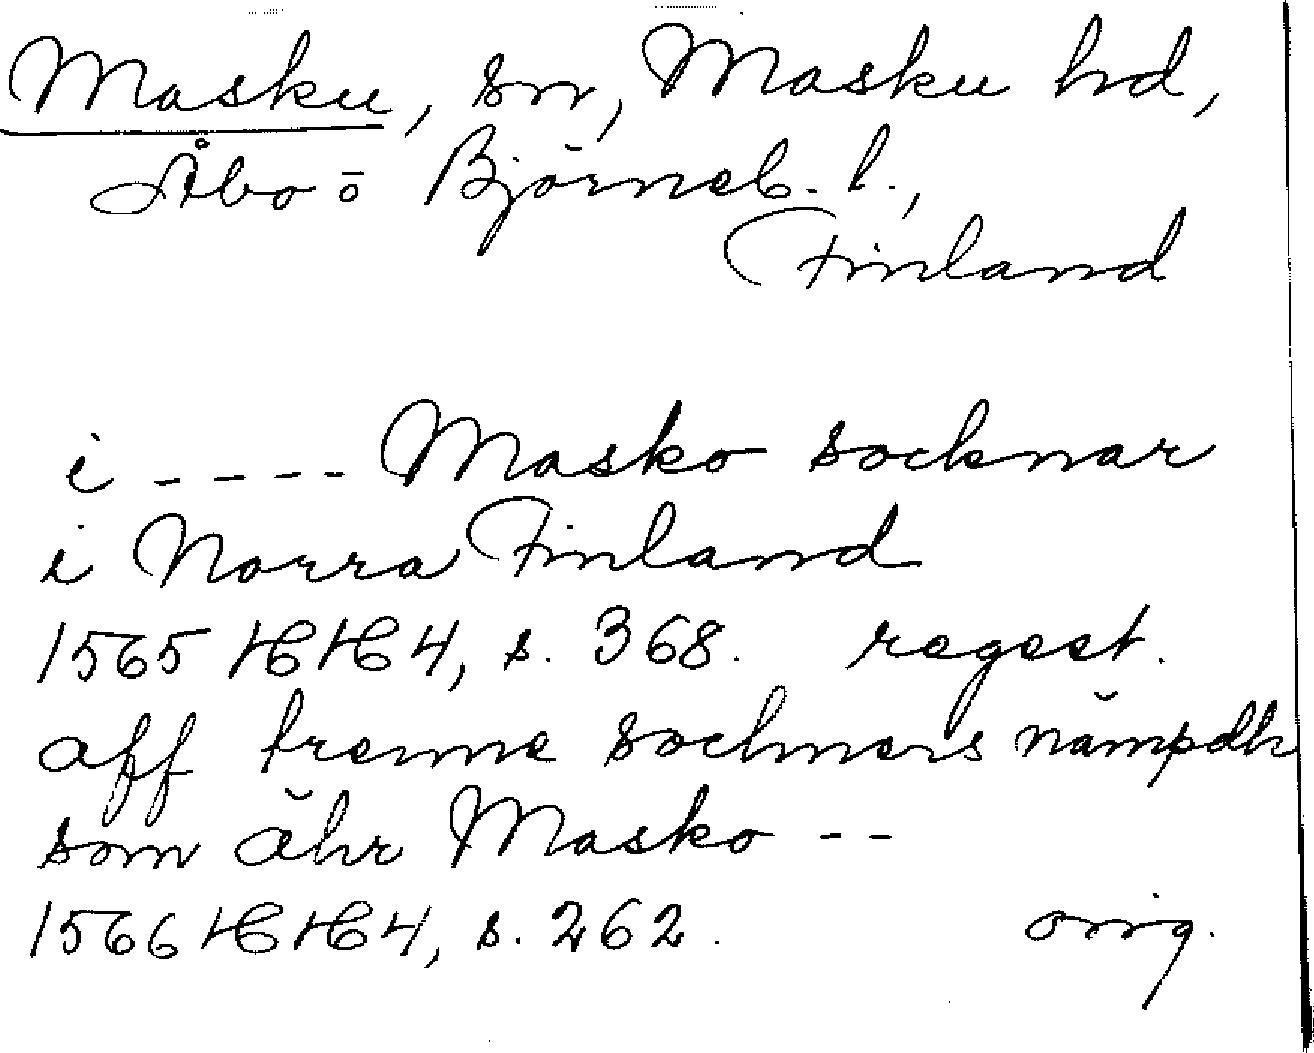 Masku, sn, Masku hd,
Åbo o Björneb. l.,
Finland
i - - - - Masko socknar
i Norra Finland
1565 HH 4, s. 368. regest.
aff trenne sochners nämpdh
som ähr Masko --
1566 HH 4, s. 262. orig.